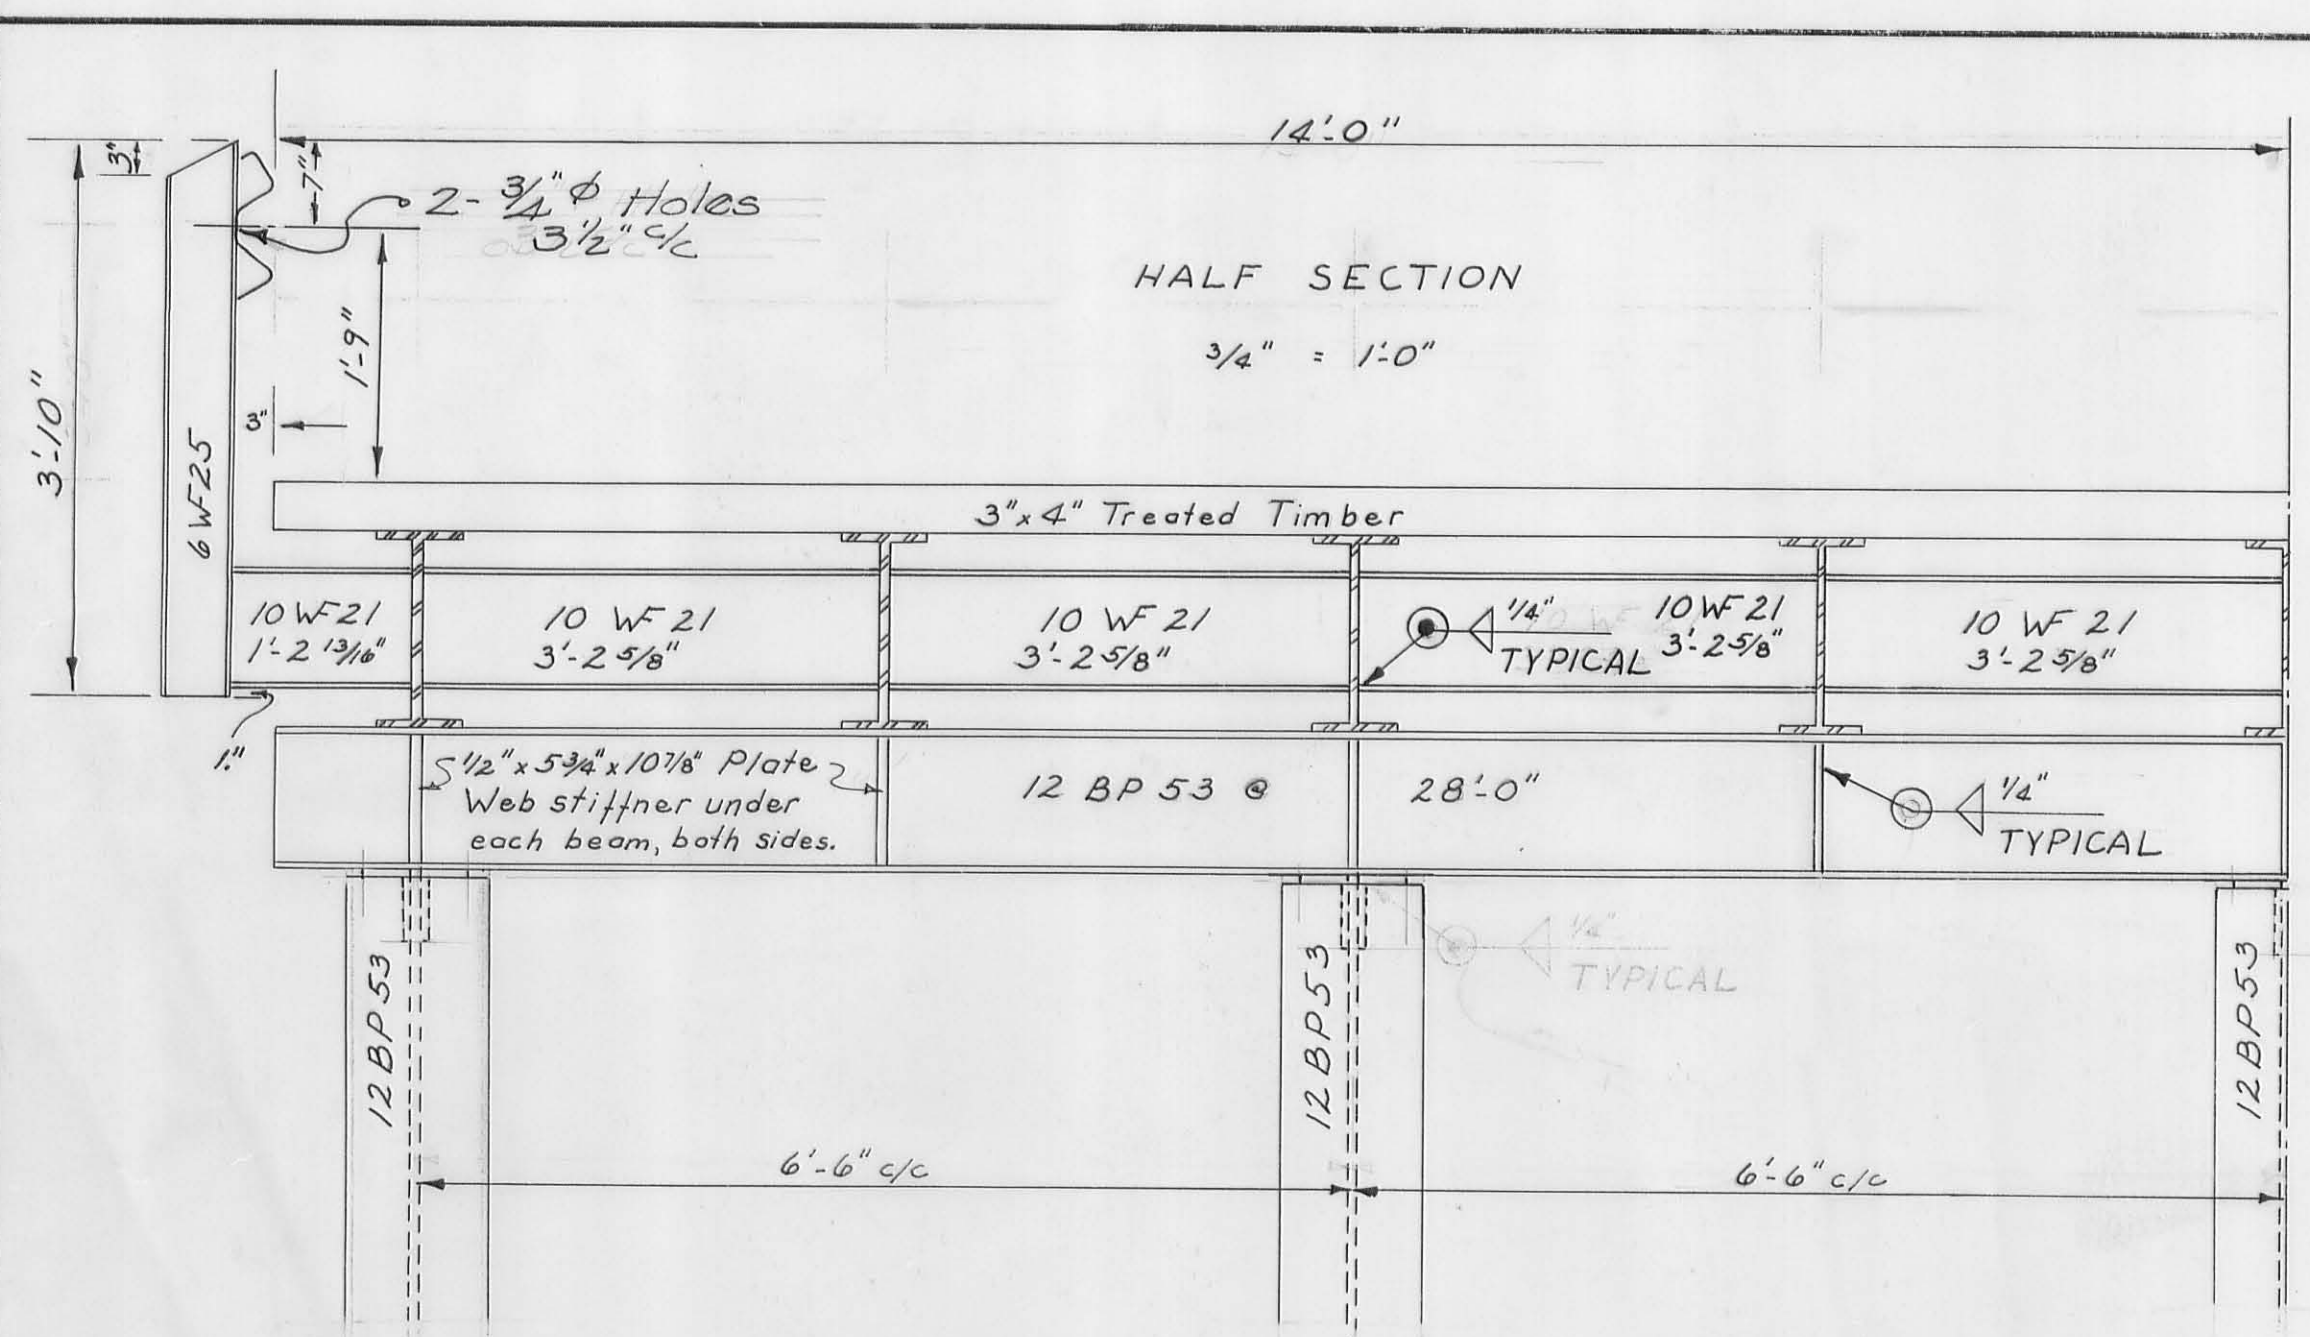 14'-0"
3"
7"
2- 3/4" ϕ Holes
3 1/2" c/c
HALF SECTION
3/4" = 1'-0"
1'-9"
3'-10"
3"
6 WF 25
3"x 4" Treated Timber
10 WF 21
1'-2 13/16"
10 WF 21
3'-2 5/8"
10 WF 21
3'-2 5/8"
1/4"
TYPICAL
10 WF 21
3'-2 5/8"
10 WF 21
3'-2 5/8"
1"
1/2" x 5 3/4" x 10 7/8" Plate
Web stiffner under
each beam, both sides.
12 BP 53 @ 28'-0"
1/4"
TYPICAL
1/4"
TYPICAL
12 BP 53
12 BP 53
12 BP 53
6'-6" c/c
6'-6" c/c